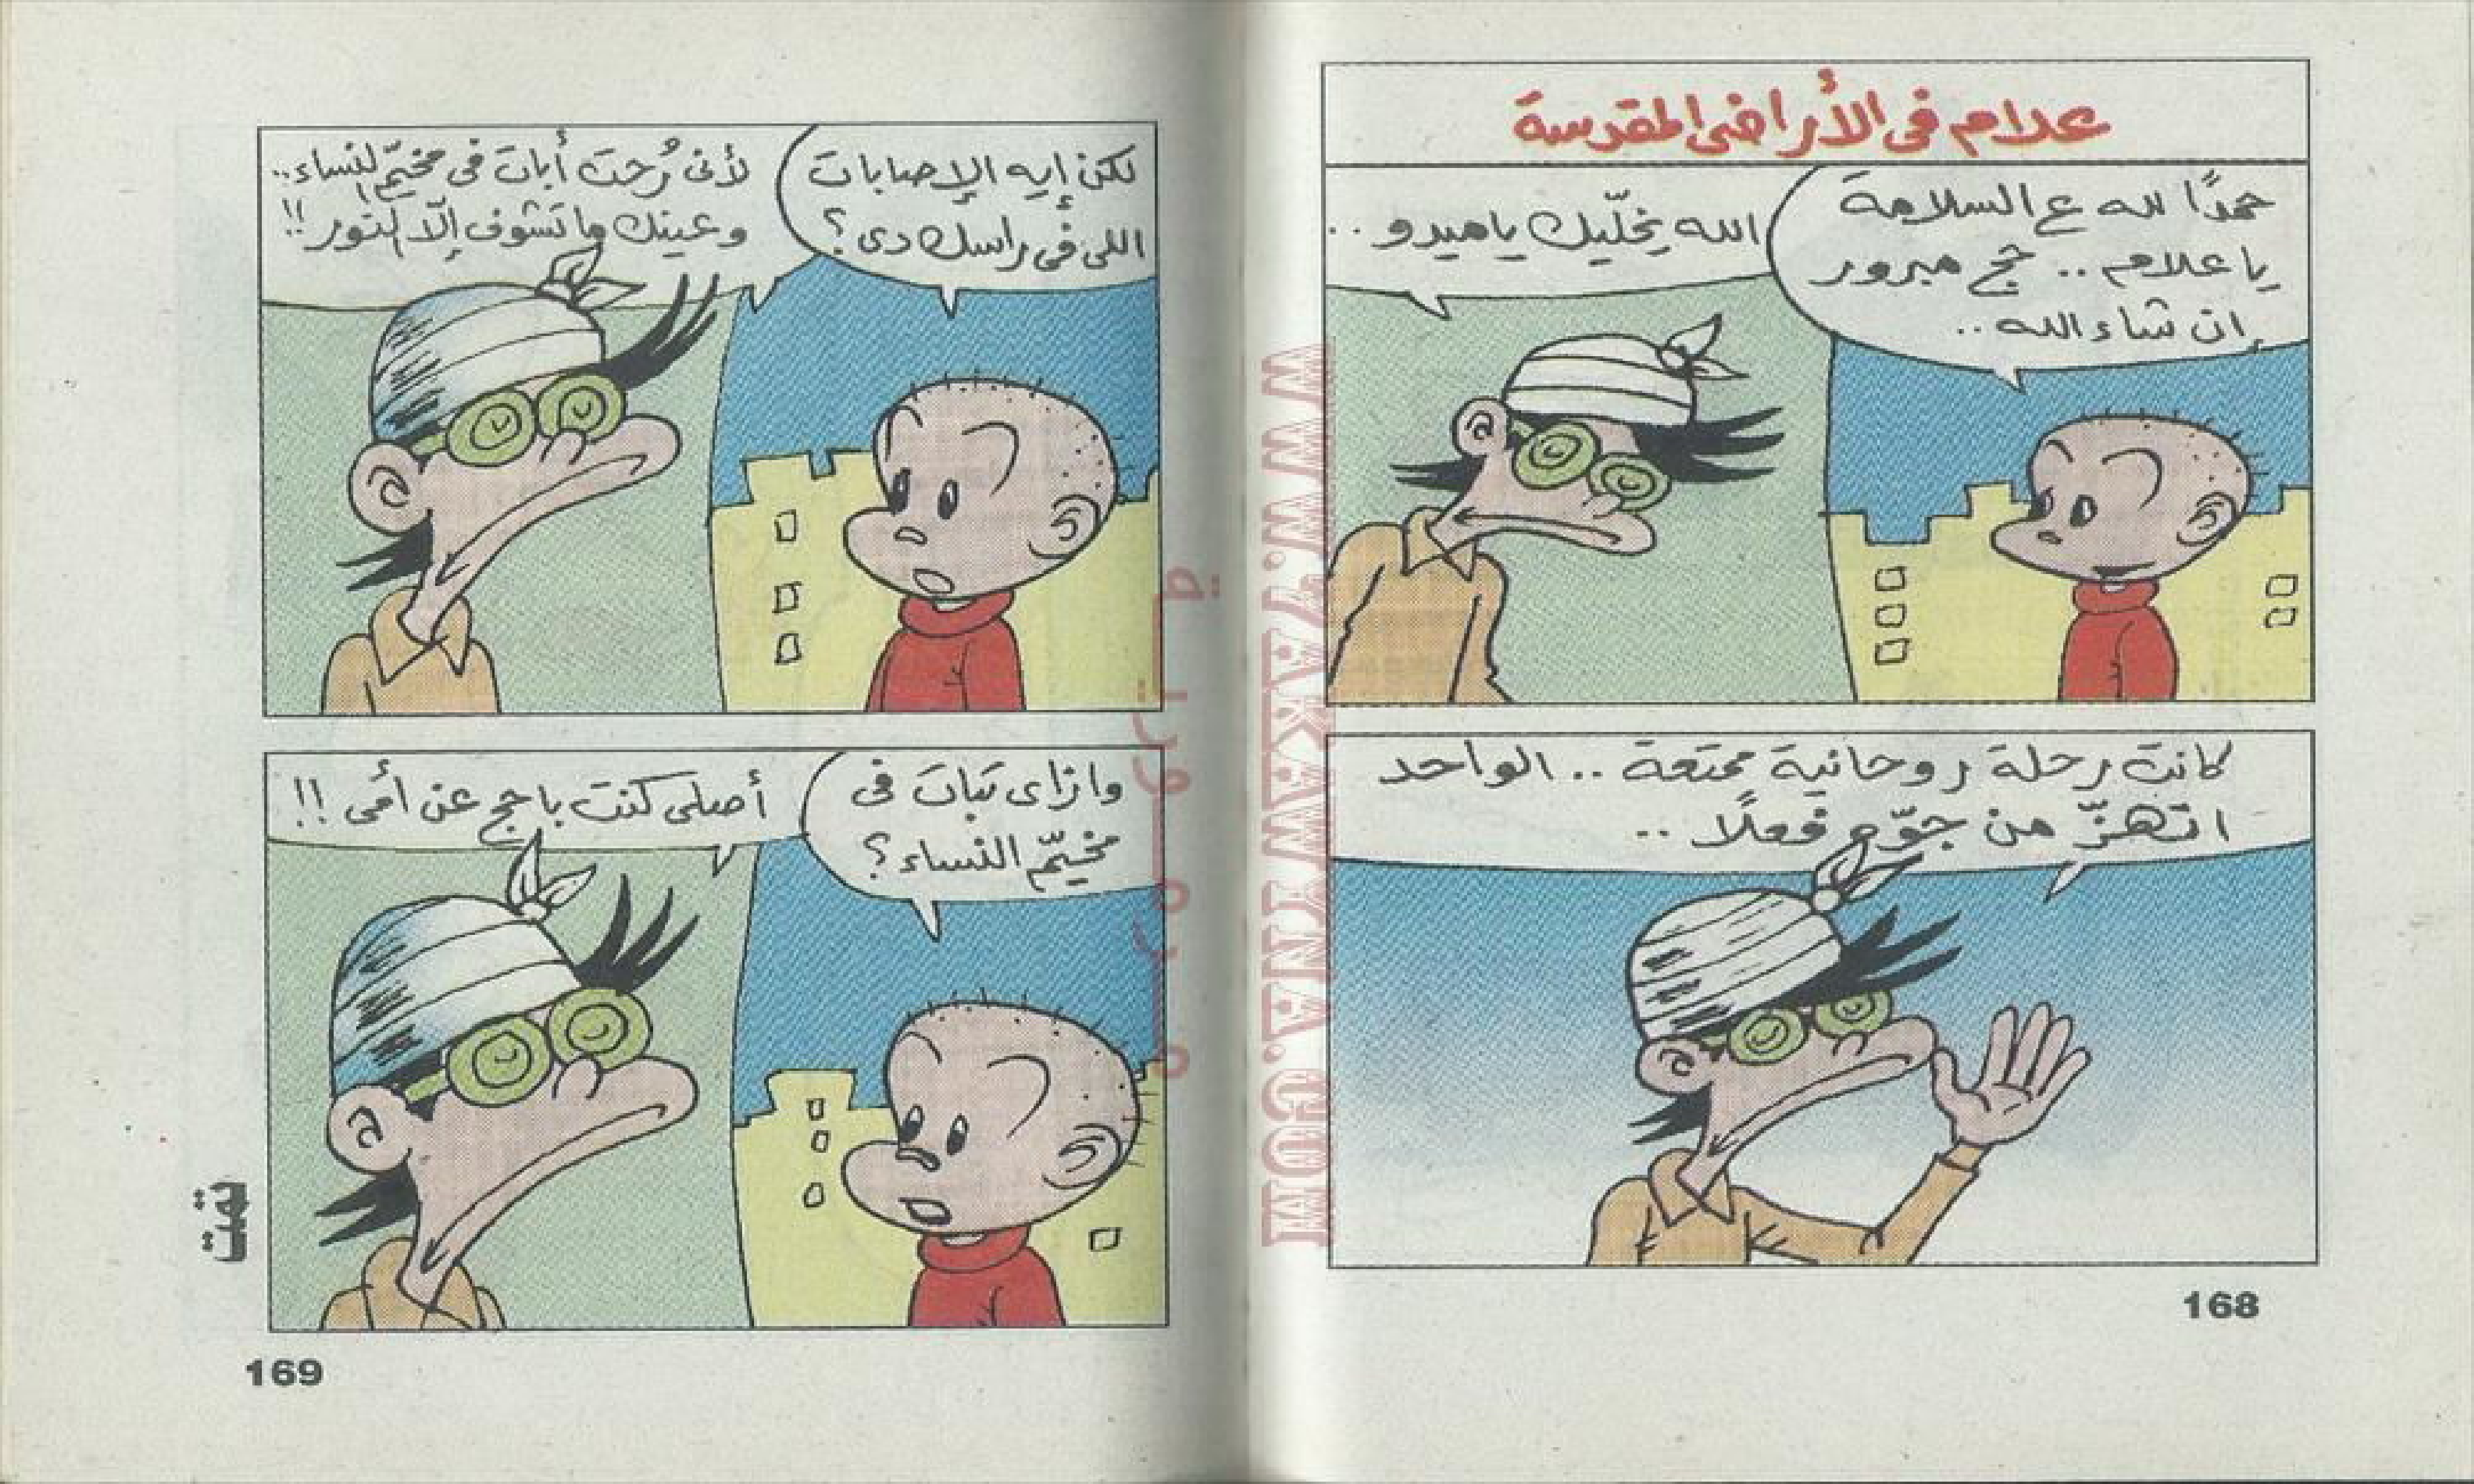 علام فى الأراضى المقدسة
حمدًا لله ع السلامة
يا علام .. حج مبرور
إن شاء الله ..
الله يخلّيك يا ميدو ..
كانت رحلة روحانية ممتعة .. الواحد
اتهزّ من جوّه فعلًا ..
168
لكن إيه الإصابات
اللى فى راسك دى ؟
لأنى رُحت أبات فى مخيّم النساء ..
وعينك ما تشوف إلّا النور !!
وازاى تبات فى
مخيّم النساء ؟
أصلى كنت باحج عن أمى !!
تمت
169
WWW.ZAKAWYNA.COM